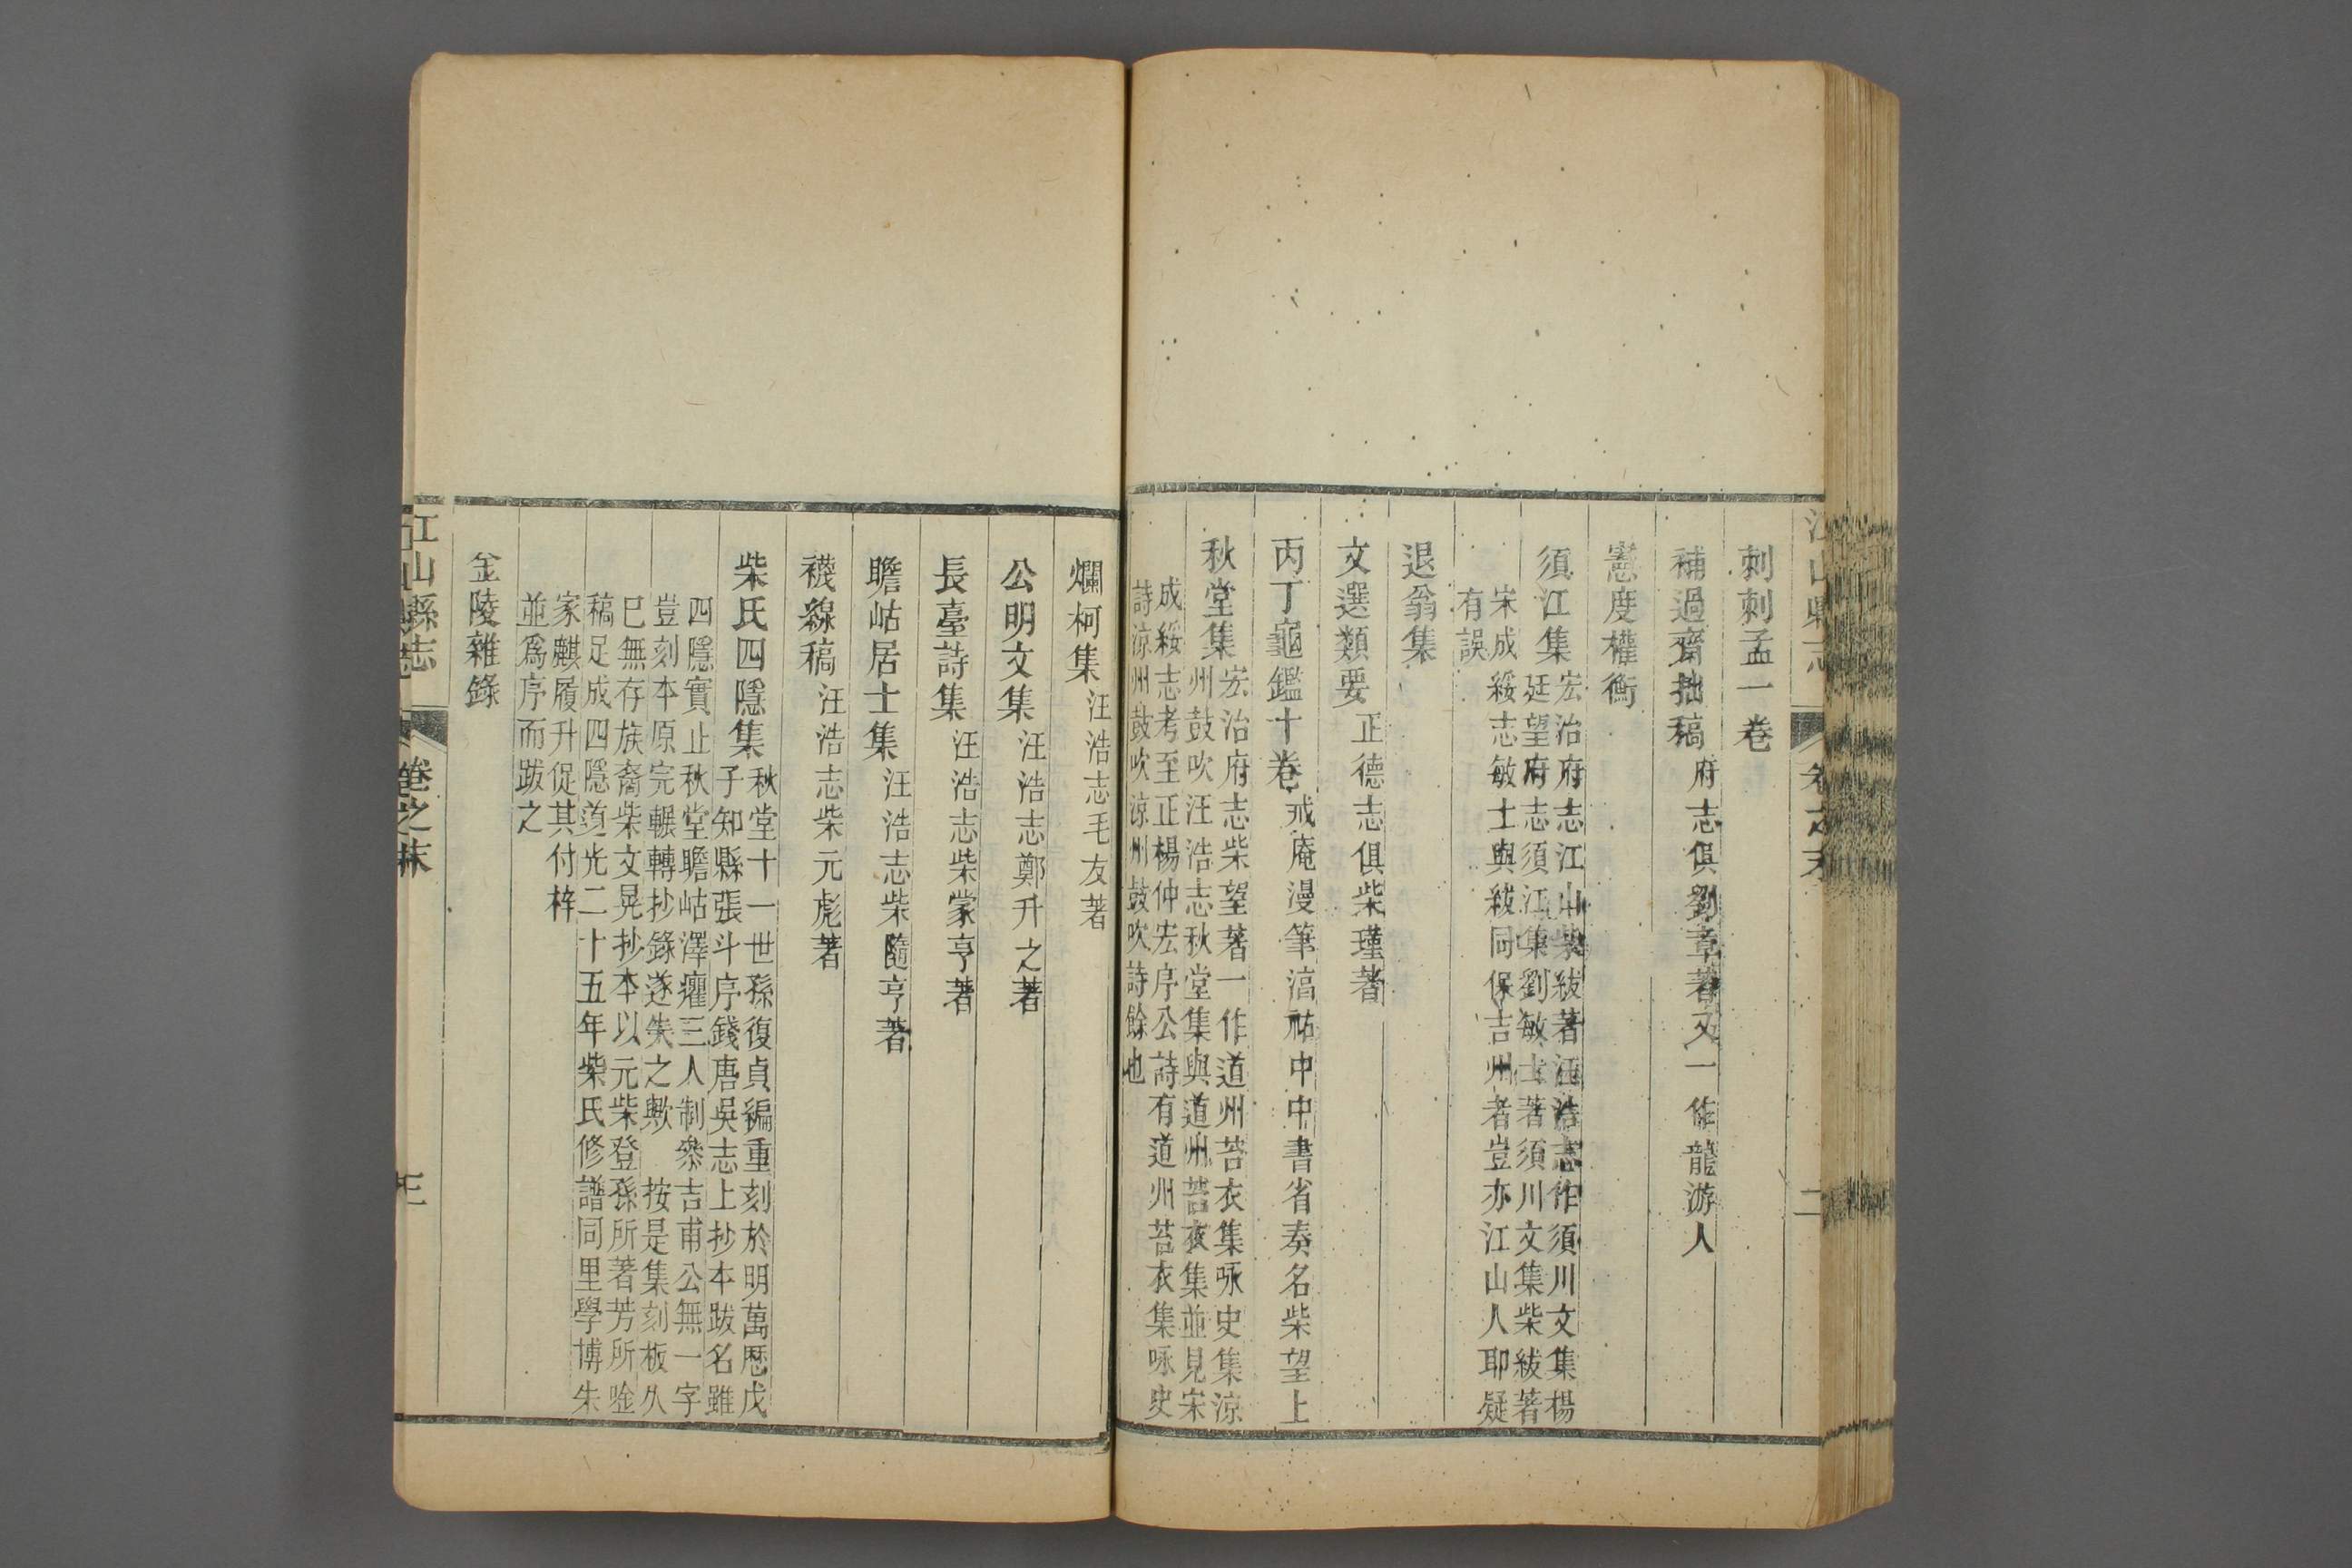 江山縣志
卷之末
二
刺刺孟一卷
補過齋拙稿府志俱劉章著又一作龍游人
憲度權衡
須江集宏治府志江山柴紱著汪浩志作須川文集楊
廷望府志須江集劉敏士著須川文集柴紱著
宋成綏志敏士與紱同保吉州者豈亦江山人耶疑
有誤
退翁集
文選類要正德志俱柴瑾著
丙丁龜鑑十卷戒庵漫筆淳祐中中書省奏名柴望上
秋堂集宏治府志柴望著一作道州苔衣集咏史集涼
州鼓吹汪浩志秋堂集與道州苔衣集並見宋
成綏志考至正楊仲宏序公詩有道州苔衣集咏史
詩涼州鼓吹涼州鼓吹詩餘也
爛柯集汪浩志毛友著
公明文集汪浩志鄭升之著
長臺詩集汪浩志柴蒙亨著
瞻岵居士集汪浩志柴隨亨著
襪線稿汪浩志柴元彪著
柴氏四隱集秋堂十一世孫復貞徧重刻於明萬歷戊
子知縣張斗序錢唐吳志上抄本跋名雖
四隱實止秋堂瞻岵澤癯三人制叅吉甫公無一字
豈刻本原完輾轉抄錄遂失之歟 按是集刻板久
巳無存族裔柴文晃抄本以元柴登孫所著芳所唫
稿足成四隱道光二十五年柴氏修譜同里學博朱
家麒履升促其付梓
並爲序而跋之
金陵雜錄
江山縣志
卷之末
三